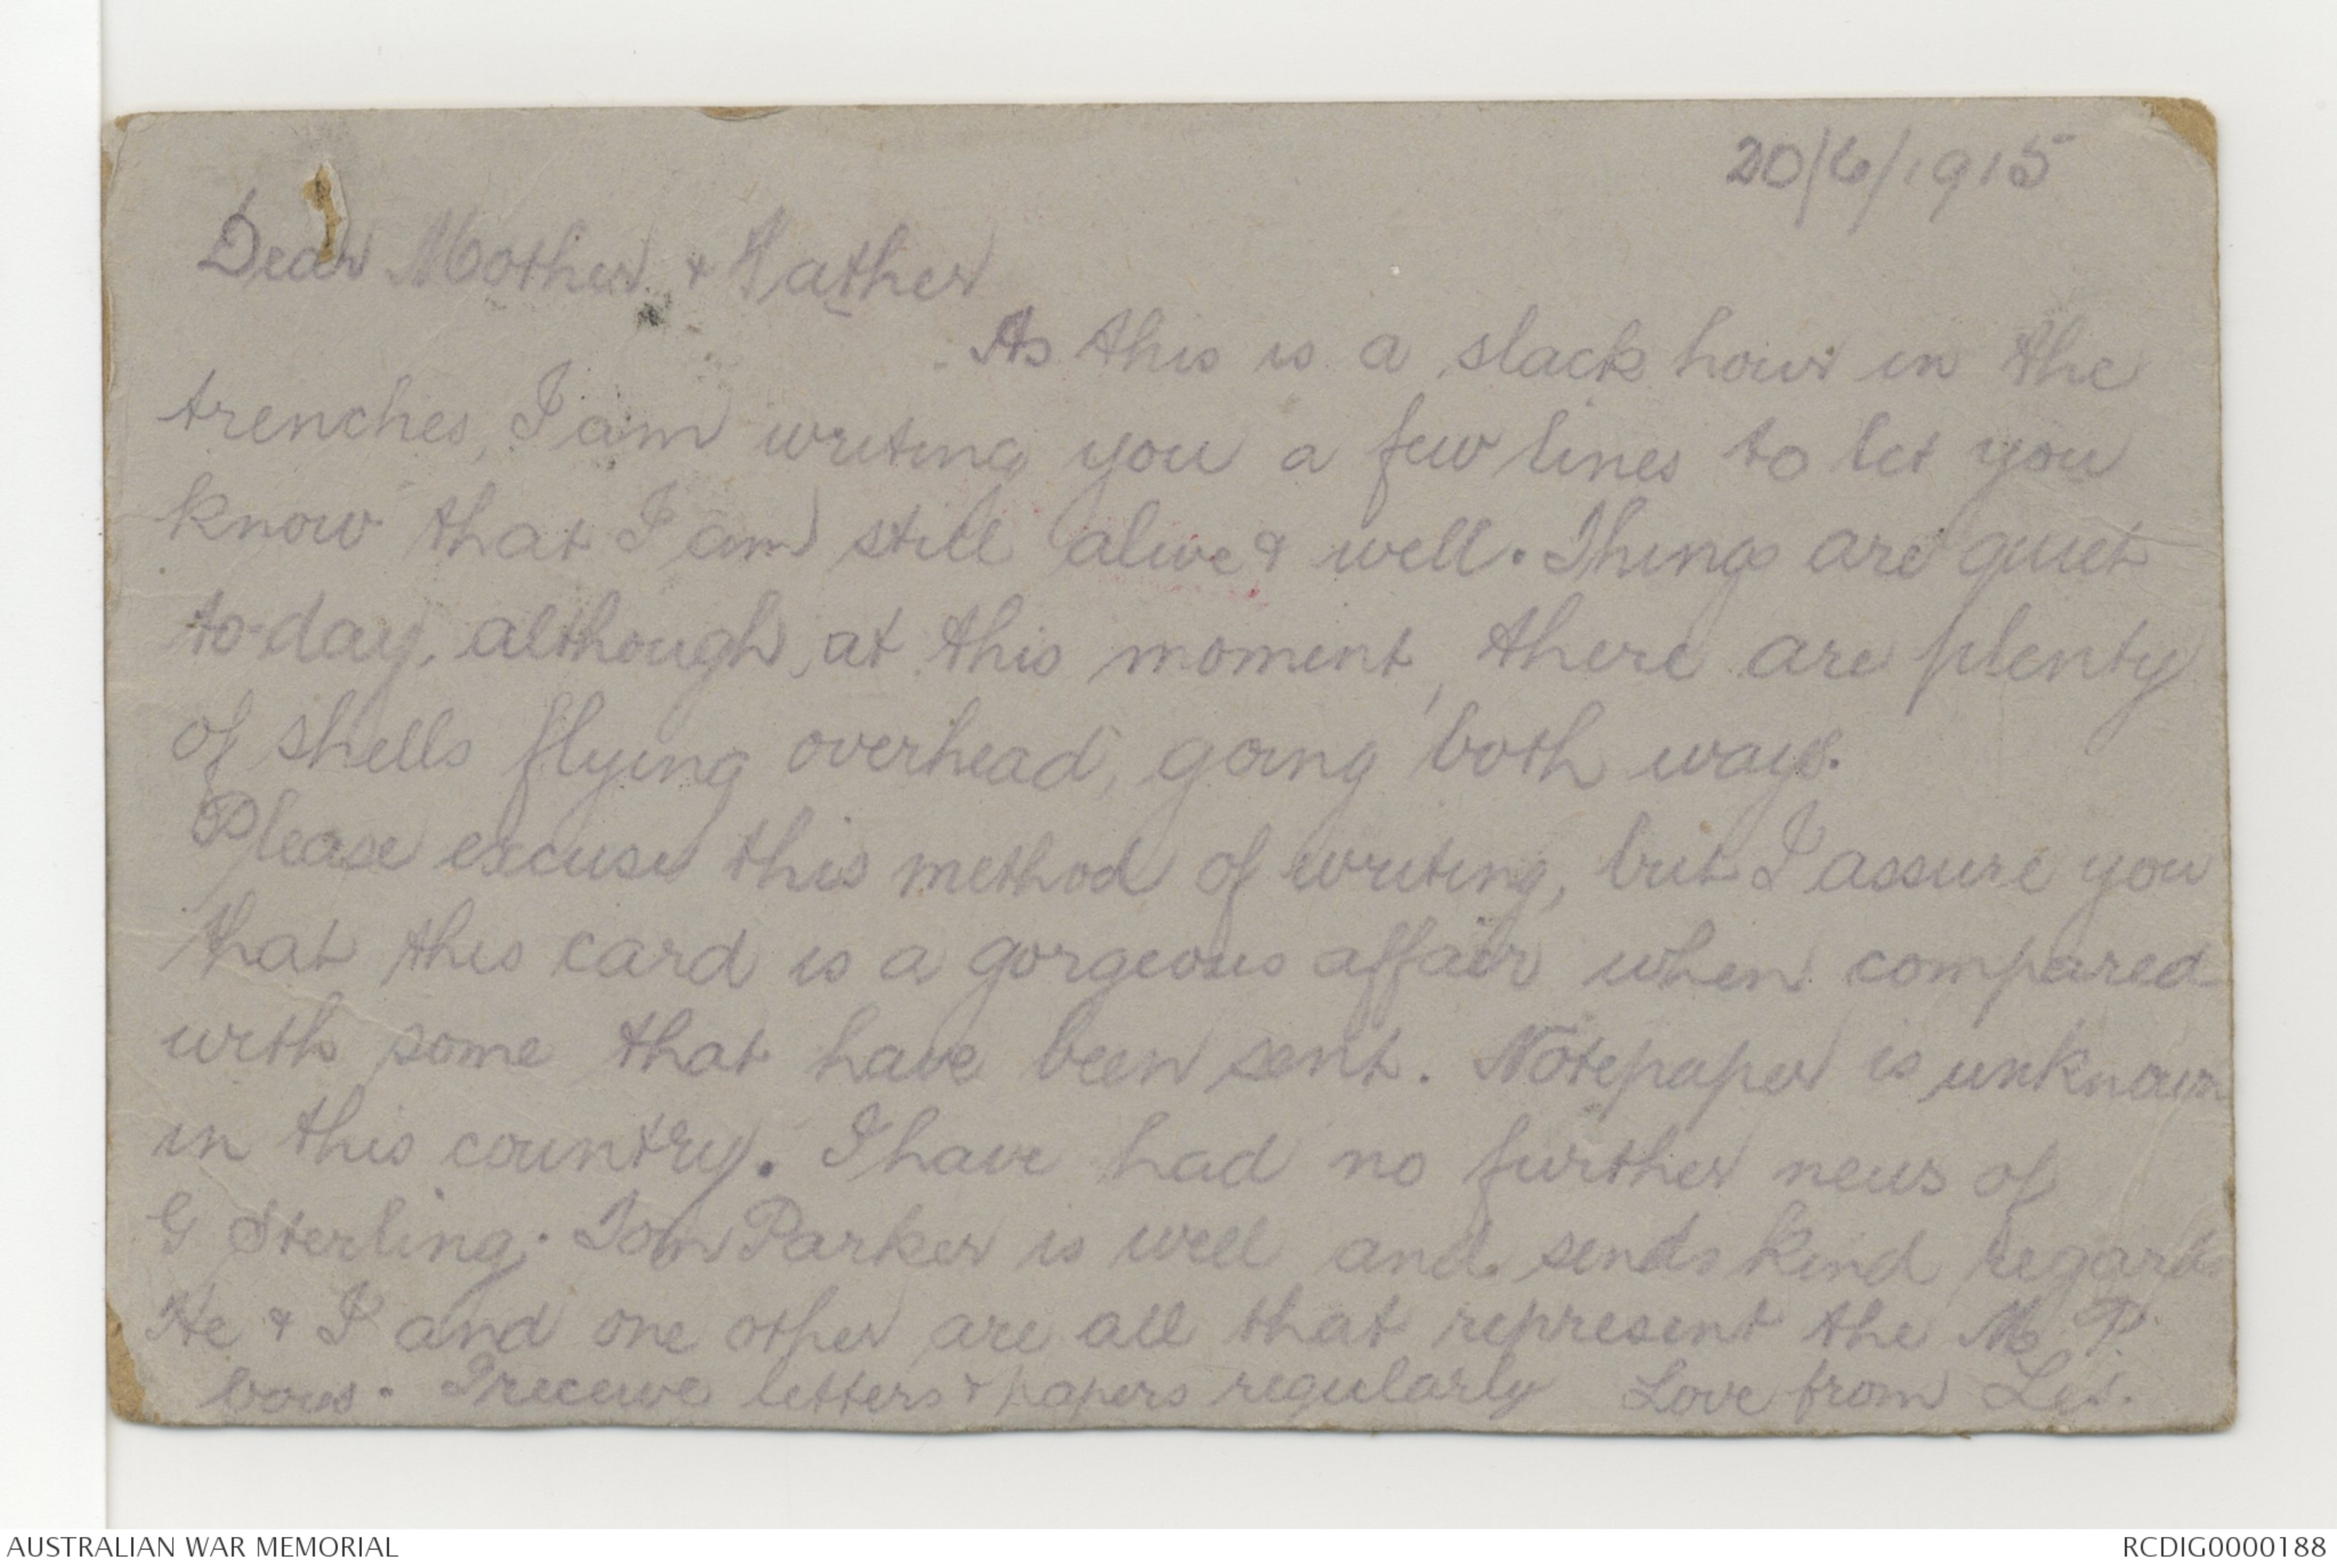 20/6/1915
Dear Mother & Father
As this is a slack hour in the
trenches, I am writing you a few lines to let you
know that I am still alive & well. Things are quiet
to-day, although, at this moment, there are plenty
of shells flying overhead, going both ways.
Please excuse this method of writing, but I assure you
that this card is a gorgeous affair when compared
with some that have been sent. Notepaper is unknown
in this country. I have had no further news of
G Sterling. Tom Parker is well and sends kind regards
He & I and one other are all that represent the M. P.
boys. I receive letters & papers regularly Love from Les.
AUSTRALIAN WAR MEMORIAL
RCDIG0000188